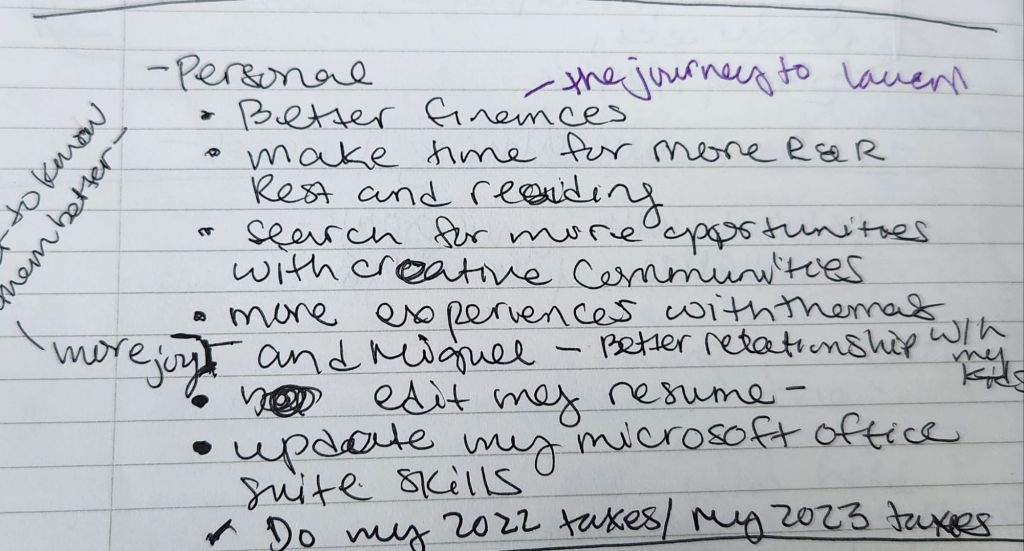 - Personal
- the journey to
• Better finances
• make time for more R&R
Rest and reading
• search for more opportunities
with creative communities
• more experiences with thomas
and Miguel - Better relationship w/h
my
kids
more joy
to know
them better -
• edit my resume -
• update my microsoft office
suite skills
✓ Do my 2022 taxes / my 2023 taxes